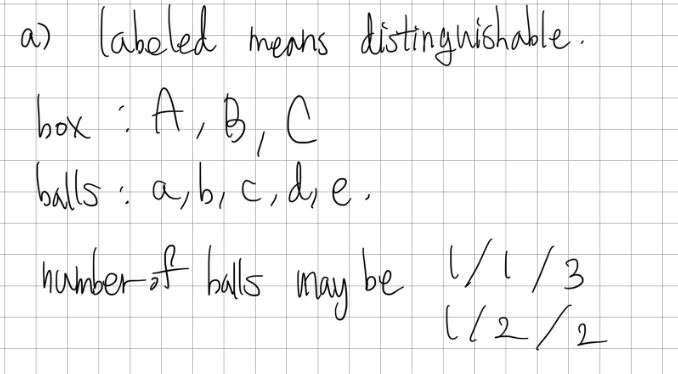 a) labeled means distinguishable.
box : A, B, C
balls : a, b, c, d, e.
number of balls may be 1/1/3
1/2/2